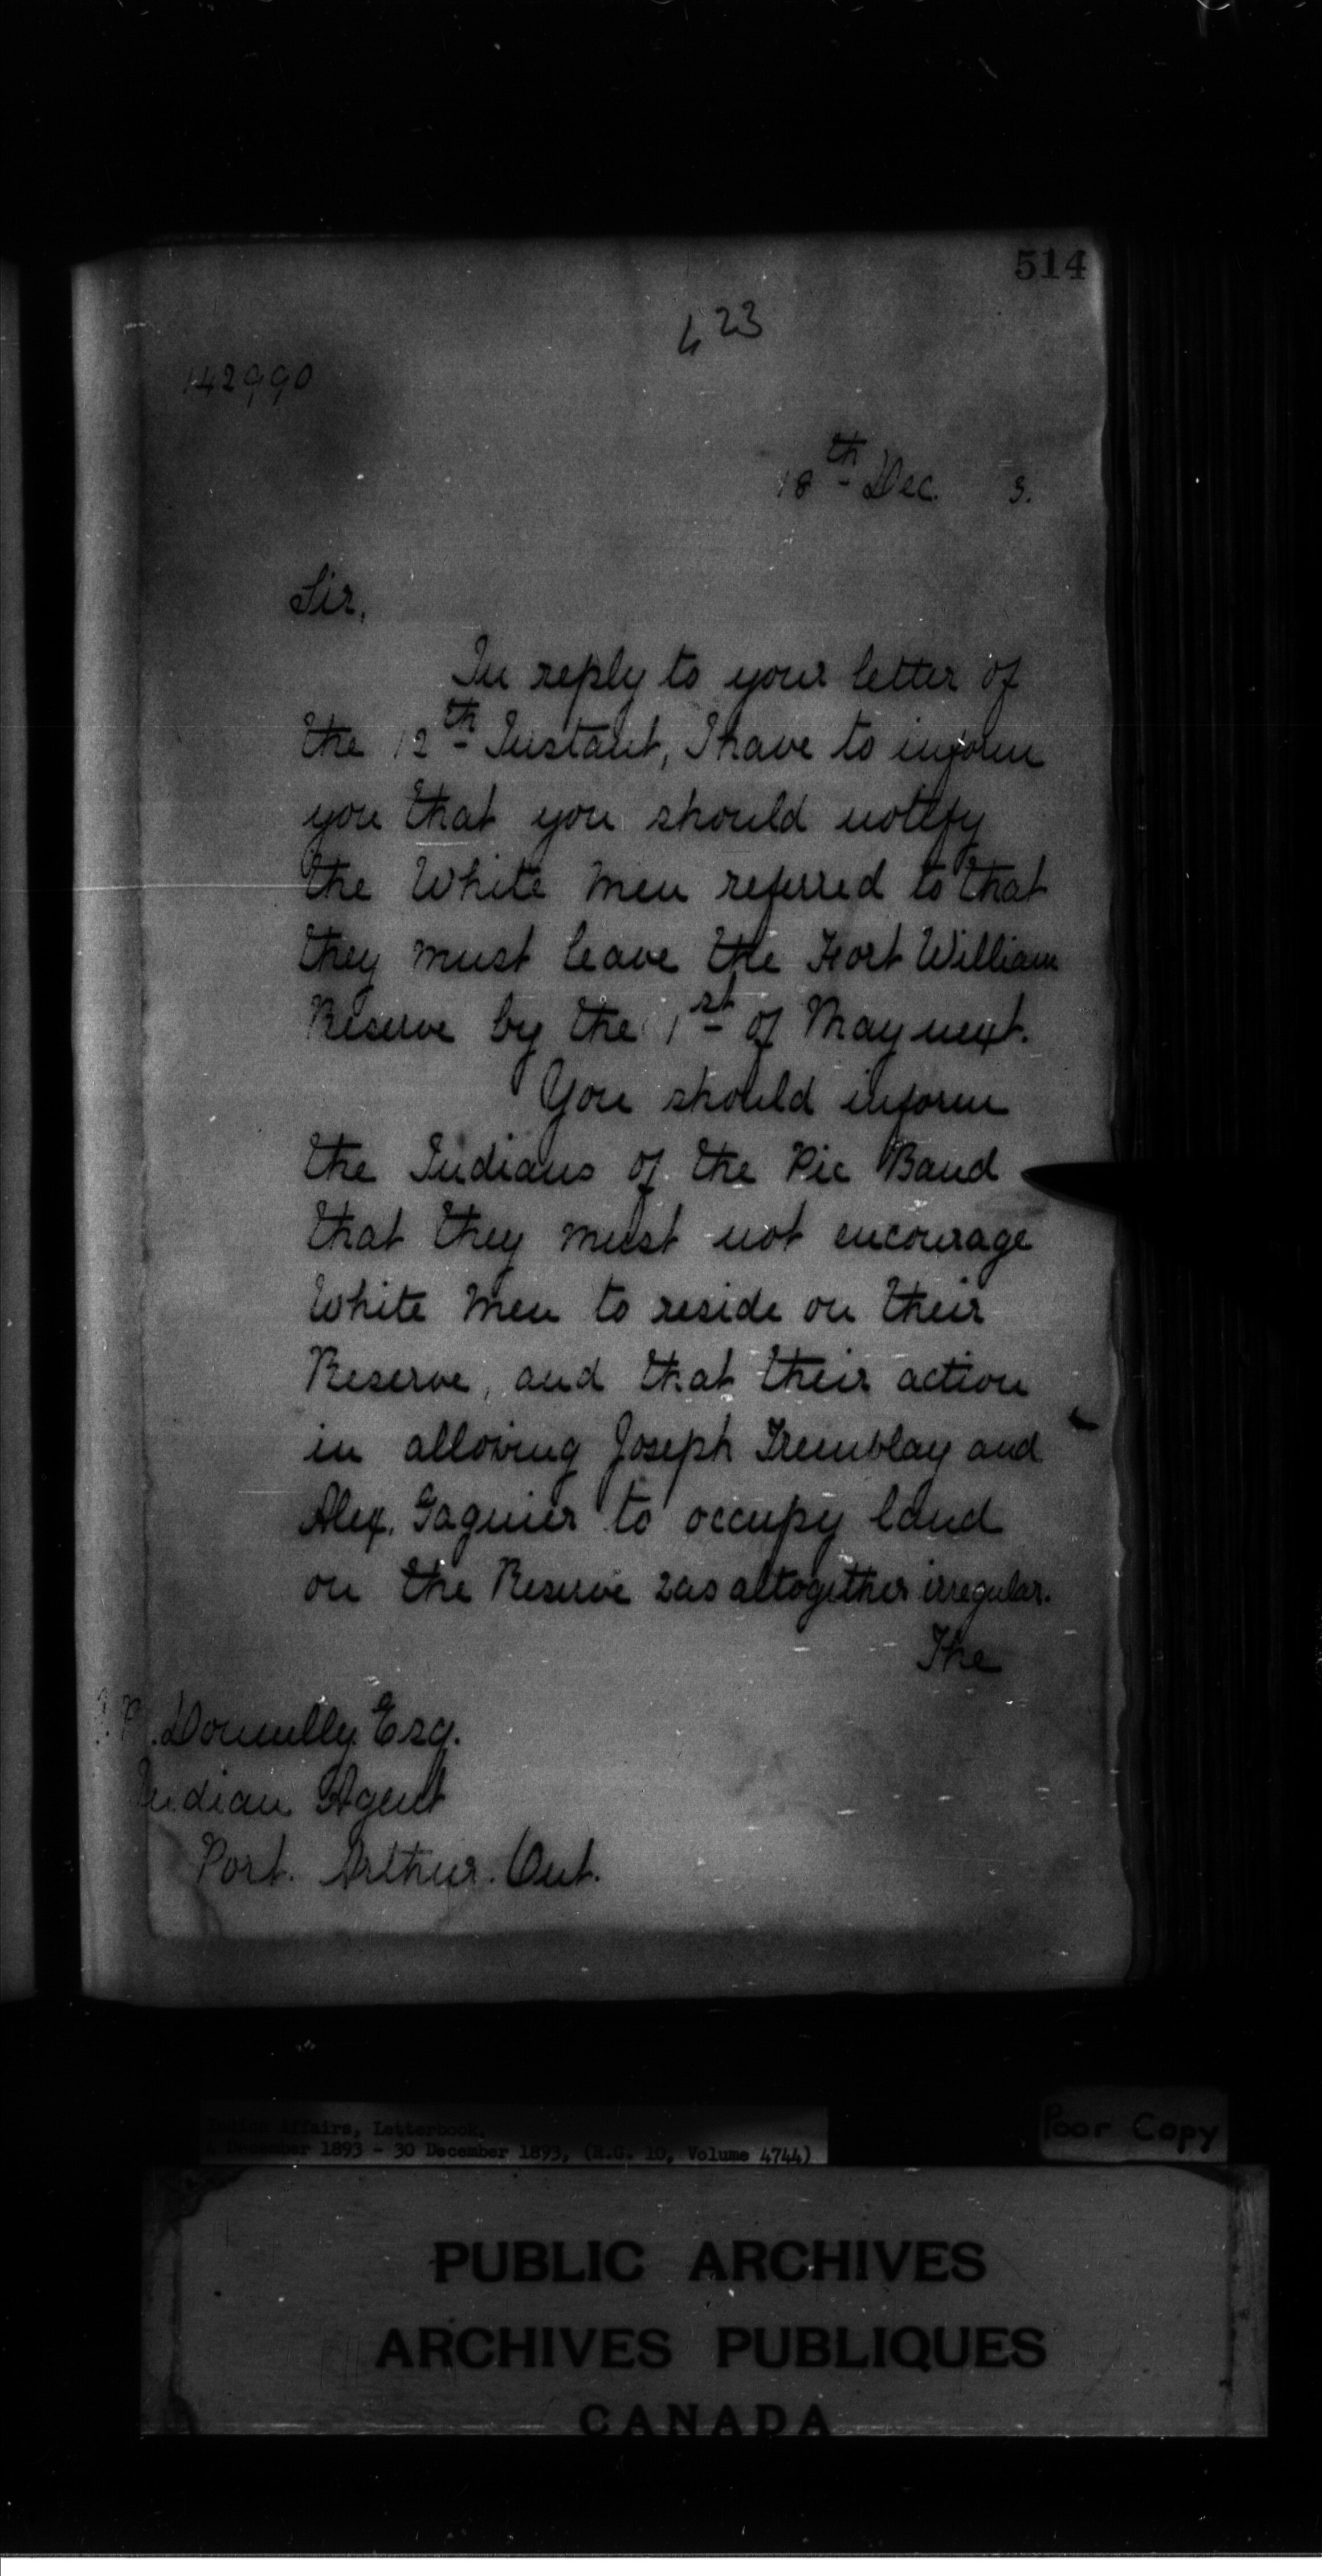 514
423
142990
18th Dec. 3.
Sir,
In reply to your letter of
the 12th Instant, I have to inform
you that you should notify
the White Men referred to that
they must leave the Fort William
Reserve by the 1st of May next.
You should inform
the Indians of the Pic Band
that they must not encourage
White Men to reside on their
Reserve, and that their action
in allowing Joseph Tremblay and
Alex. Gagnier to occupy land
on the Reserve was altogether irregular.
The
Donnelly Esq.
Indian Agent
Port. Arthur. Ont.
Indian Affairs, Letterbook,
4 December 1893 - 30 December 1893, (R.G. 10, Volume 4744)
Poor Copy
PUBLIC ARCHIVES
ARCHIVES PUBLIQUES
CANADA